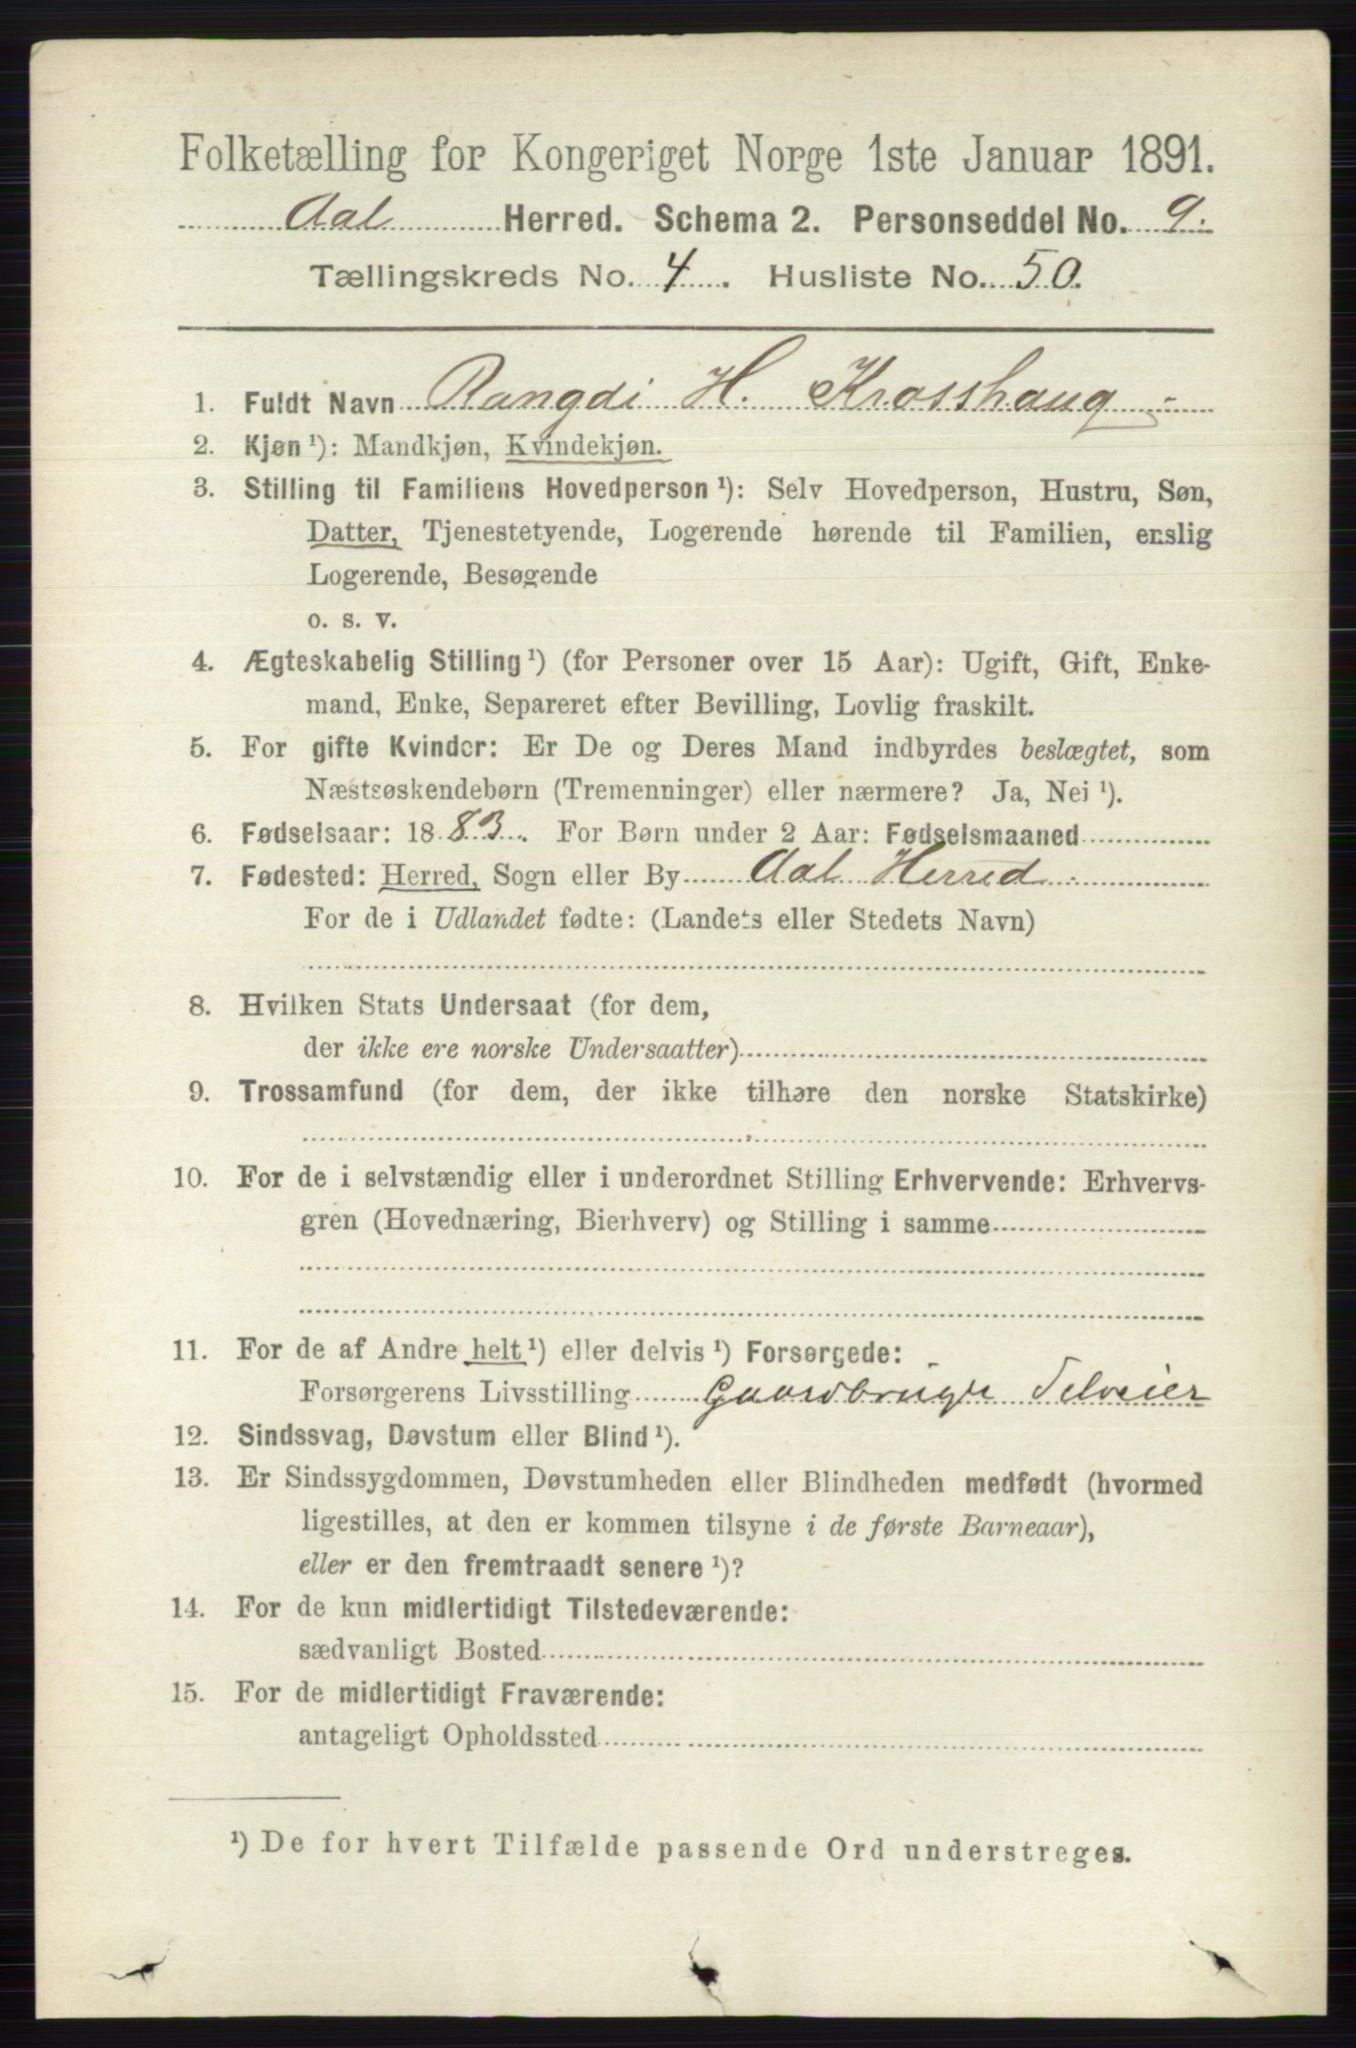 Folketælling for Kongeriget Norge 1ste Januar 1891.
Aal Herred. Schema 2. Personseddel No. 9.
Tællingskreds No. 4. Husliste No. 50.
1. Fuldt Navn Rangdi H. Krosshaug
2. Kjøn ¹): Mandkjøn, Kvindekjøn.
3. Stilling til Familiens Hovedperson ¹): Selv Hovedperson, Hustru, Søn,
Datter, Tjenestetyende, Logerende hørende til Familien, enslig
Logerende, Besøgende
o. s. v.
4. Ægteskabelig Stilling ¹) (for Personer over 15 Aar): Ugift, Gift, Enke-
mand, Enke, Separeret efter Bevilling, Lovlig fraskilt.
5. For gifte Kvinder: Er De og Deres Mand indbyrdes beslægtet, som
Næstsøskendebørn (Tremenninger) eller nærmere? Ja, Nei ¹).
6. Fødselsaar: 1883. For Børn under 2 Aar: Fødselsmaaned
7. Fødested: Herred, Sogn eller By Aal Herred
For de i Udlandet fødte: (Landets eller Stedets Navn)
8. Hvilken Stats Undersaat (for dem,
der ikke ere norske Undersaatter)
9. Trossamfund (for dem, der ikke tilhøre den norske Statskirke)
10. For de i selvstændig eller i underordnet Stilling Erhvervende: Erhvervs-
gren (Hovednæring, Bierhverv) og Stilling i samme
11. For de af Andre helt ¹) eller delvis ¹) Forsørgede:
Forsørgerens Livsstilling Gaardbruger Selveier
12. Sindssvag, Døvstum eller Blind ¹).
13. Er Sindssygdommen, Døvstumheden eller Blindheden medfødt (hvormed
ligestilles, at den er kommen tilsyne i de første Barneaar),
eller er den fremtraadt senere ¹)?
14. For de kun midlertidigt Tilstedeværende:
sædvanligt Bosted
15. For de midlertidigt Fraværende:
antageligt Opholdssted
¹) De for hvert Tilfælde passende Ord understreges.